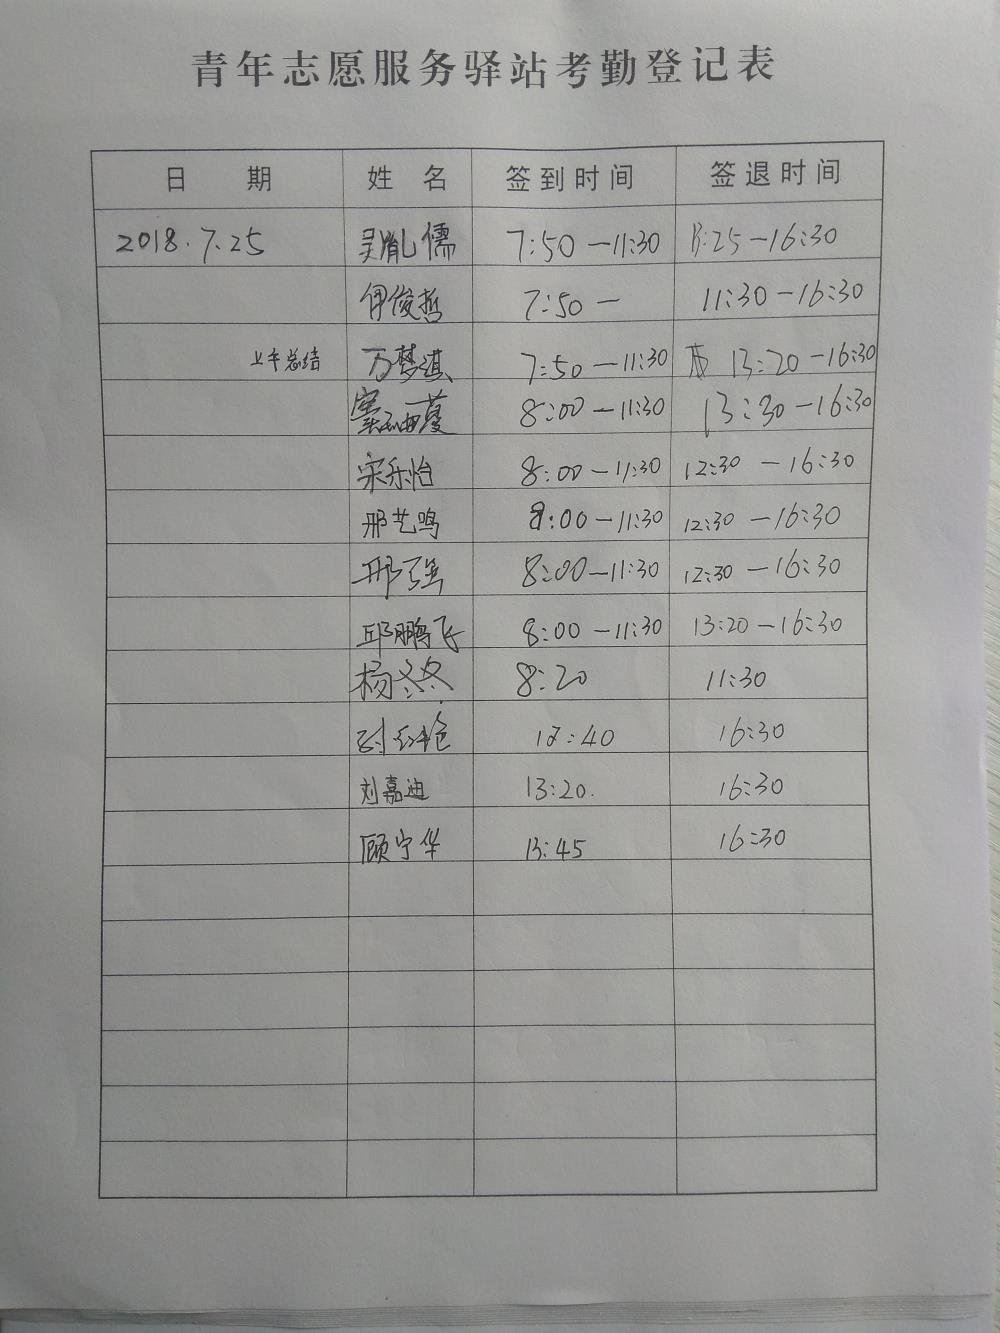 青年志愿服务驿站考勤登记表
日 期 姓 名 签到时间 签退时间
2018.7.25 吴胤儒 7:50-11:30 13:25-16:30
伊俊哲 7:50- 11:30-16:30
上午总结 万梦淇 7:50-11:30 13:20-16:30
8:00-11:30 13:30-16:30
宋乐怡 8:00-11:30 12:30-16:30
邢艺鸣 8:00-11:30 12:30-16:30
邢强 8:00-11:30 12:30-16:30
邱鹏飞 8:00-11:30 13:20-16:30
杨冬冬 8:20 11:30
:40 16:30
刘嘉迪 13:20. 16:30
顾宁华 13:45 16:30